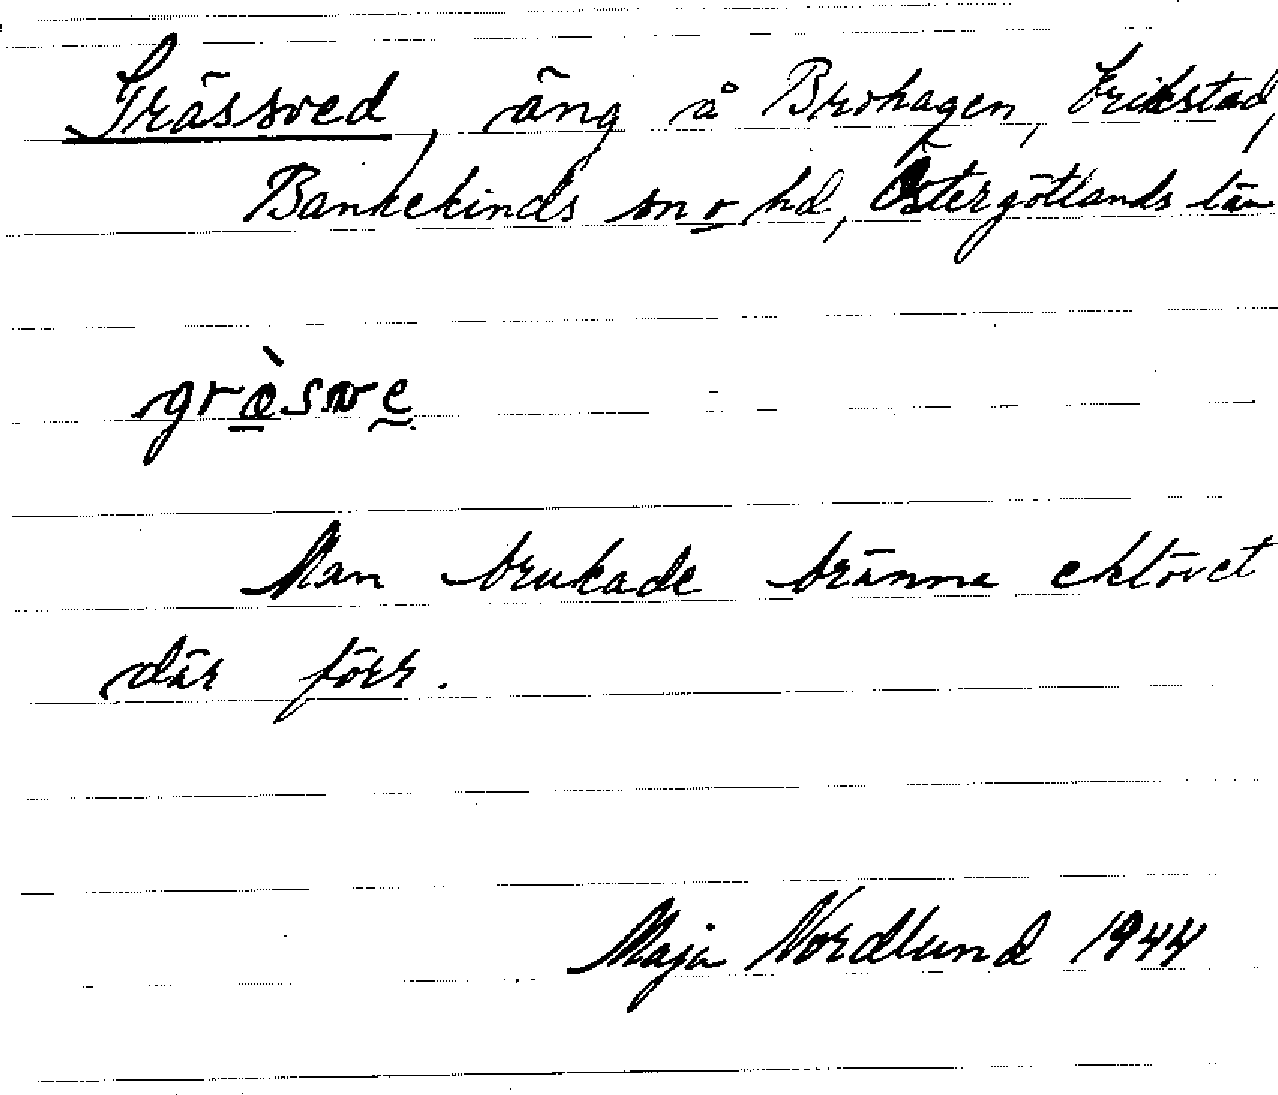 Grässved, äng å Brohagen, Erikstad,
Bankekinds sn o hd, Östergötlands län
Man brukade bränna eklövet
där förr.
Maja Nordlund 1944